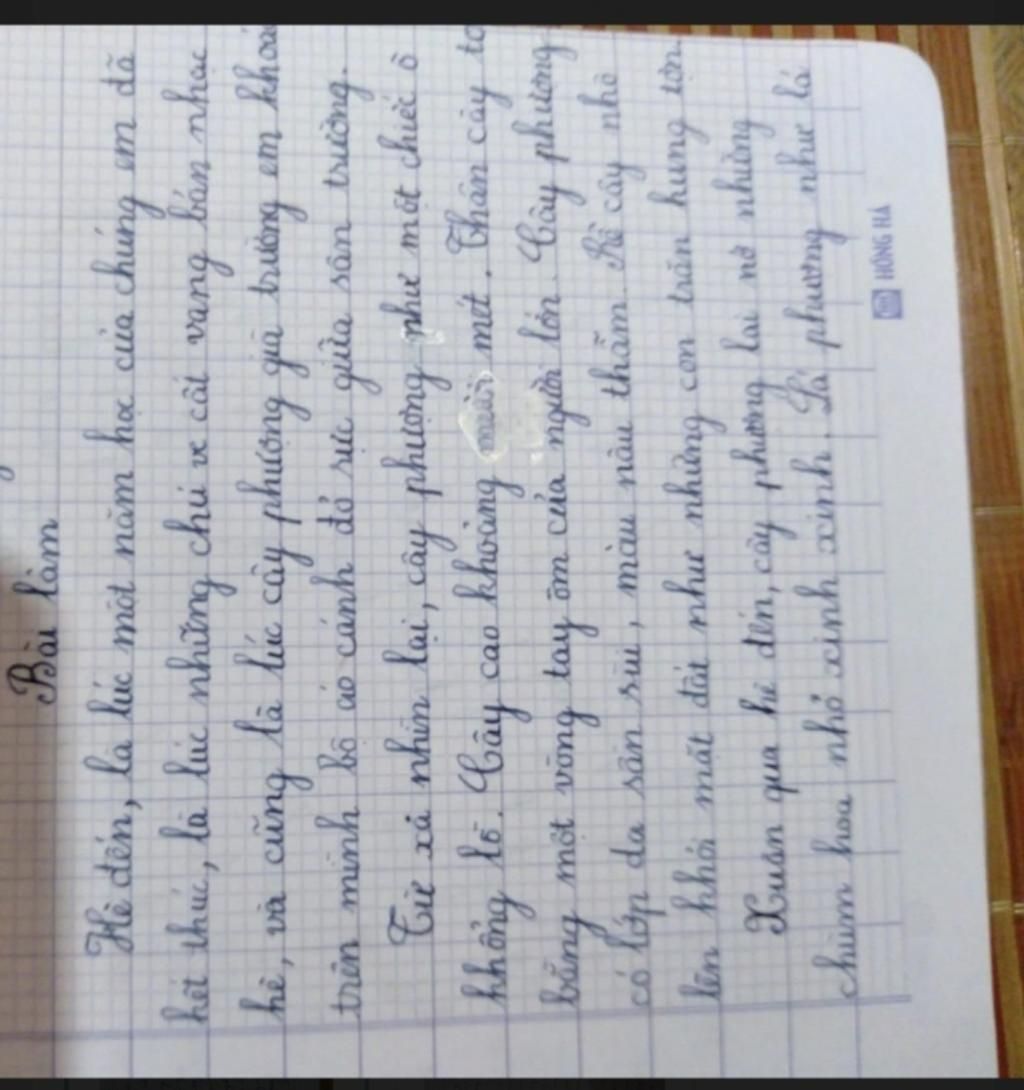 Bài làm
Hè đến, là lúc một năm học của chúng em đã
hết thúc, là lúc những chú ve cất vang bản nhạc
hè, và cũng là lúc cây phượng già trường em khoá
trên mình bộ áo cánh đỏ rực giữa sân trường.
Từ xa nhìn lại, cây phượng như một chiếc ô
khổng lồ. Cây cao khoảng mười mét. Thân cây to
bằng một vòng tay ôm của người lớn. Cây phượng
có lớp da sần sùi, màu nâu thẫm. Rễ cây nhô
lên khỏi mặt đất như những con trăn hung tợn.
Xuân qua hè đến, cây phượng lại nở những
chùm hoa nhỏ xinh xinh. Lá phượng như lá
HỒNG HÀ